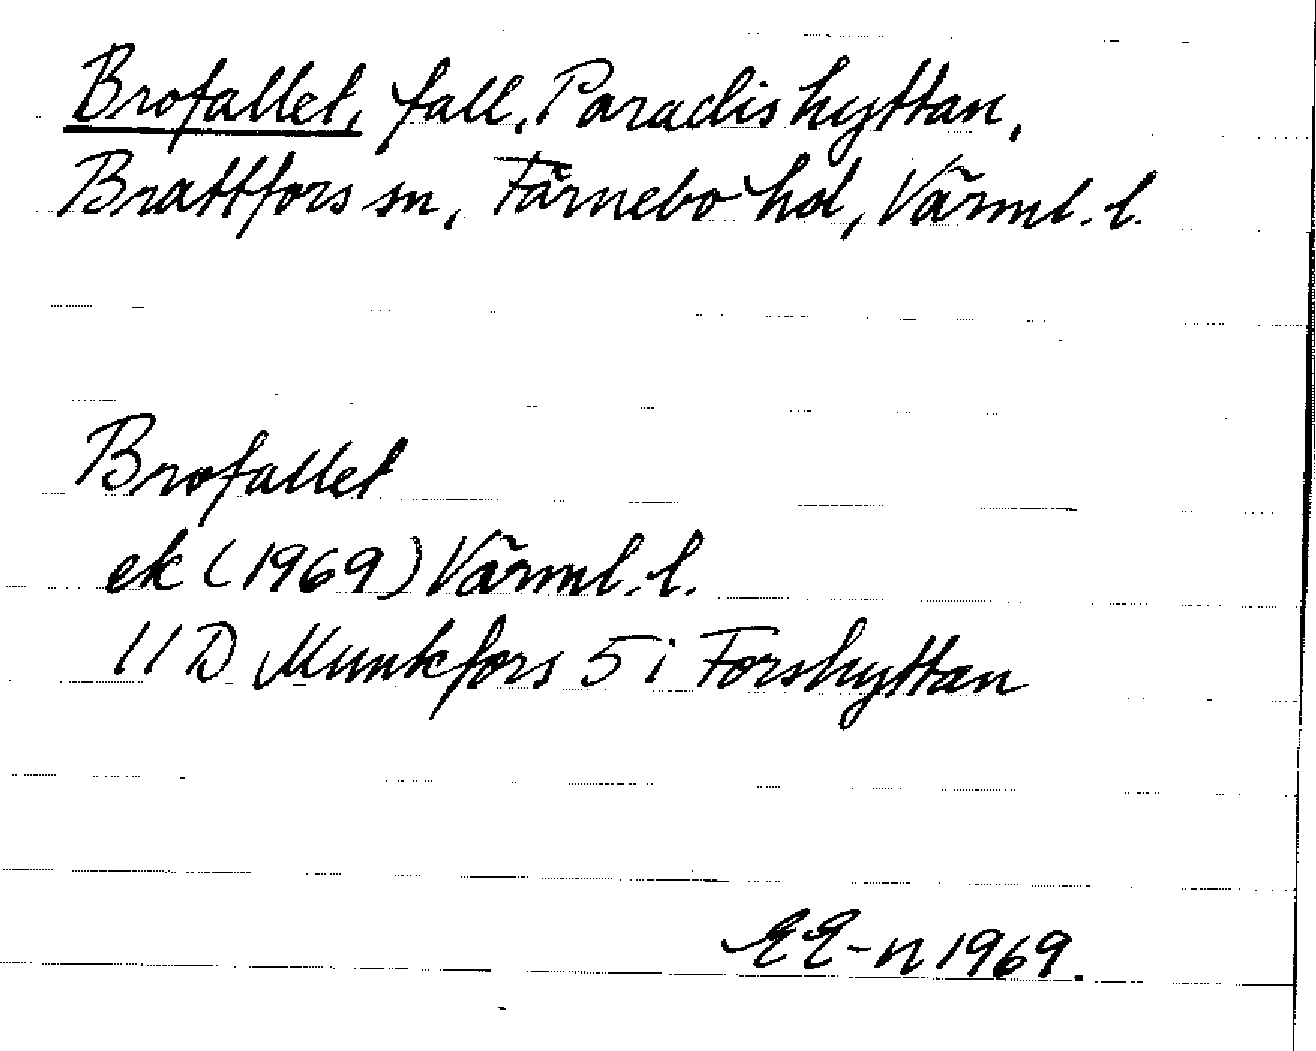 Brofallet, fall, Paradishyttan,
Brattfors sn, Färnebo hd, Värml. l.
Brofallet
ek (1969) Värml. l.
11 D Munkfors 5 i Forshyttan
EE-n 1969.